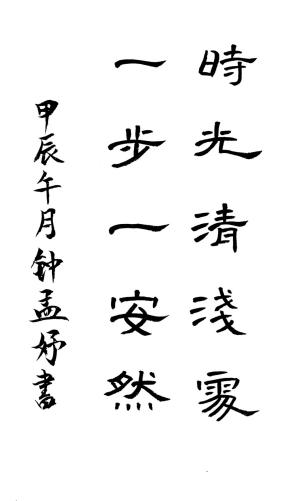 時光清淺處
一步一安然
甲辰午月钟孟妤書